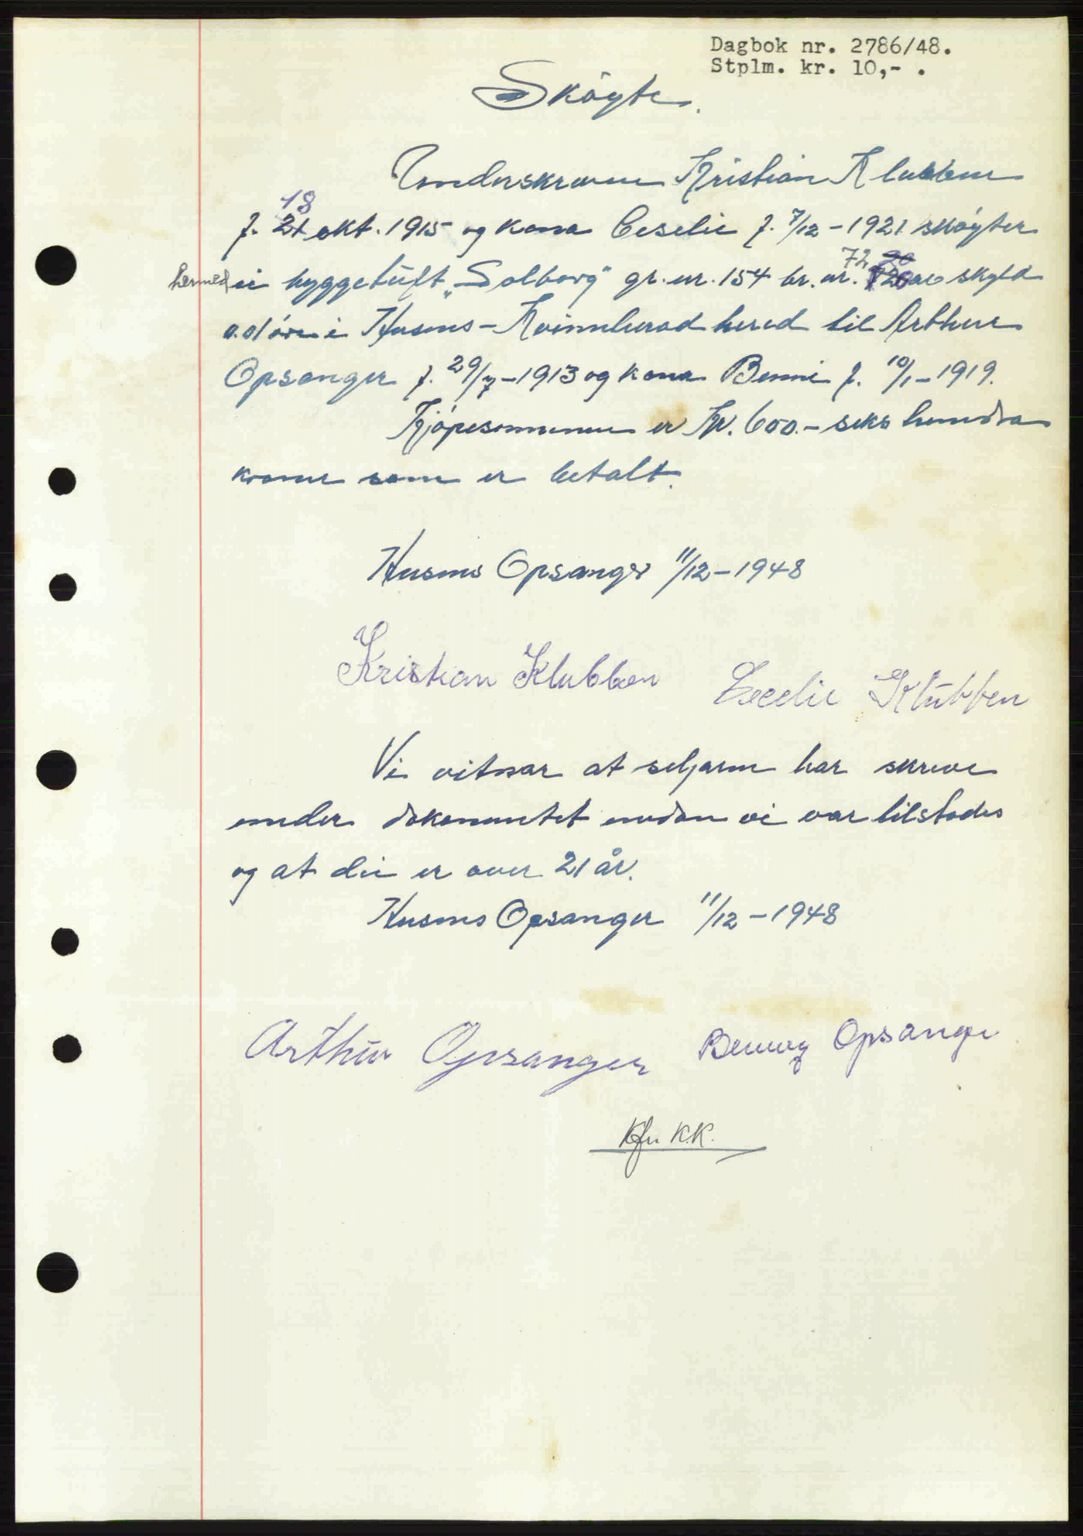 Dagbok nr. 2786/48.
Stplm. kr. 10,- .
Skøyte.
Underskrevne Kristian Klubben
18
f. 21 okt. 1915 og kona Ceselie f. 7/12 - 1921 skøyter
hermed ei byggetuft „Solborg" gr. nr. 154 br. nr. 72 av skyld
0.01 øre i Husnes - Kvinnherad hered til Arthur
Opsanger f. 29/7 - 1913 og kona Benni f. 10/1 - 1919.
Kjøpesummen er Kr. 600.- seks hundra
kroner som er betalt.
Husnes Opsanger 11/12 - 1948
Kristian Klubben Cecelie Klubben
Vi vitnar at seljarne har skreve
under dokumentet medan vi var tilstades
og at dei er over 21 år.
Husnes Opsanger 11/12 - 1948
Arthur Opsanger Benny Opsanger
K.K.